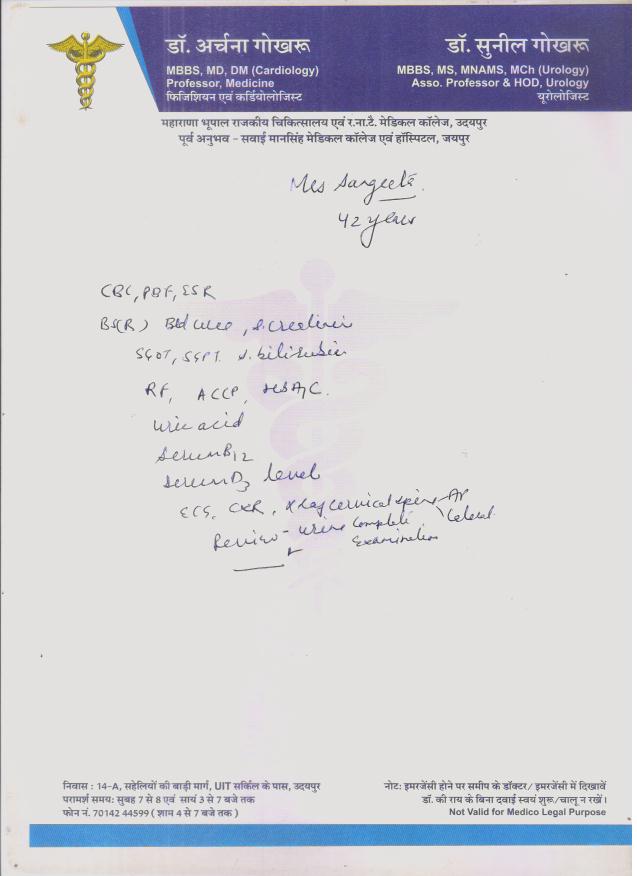 डॉ. अर्चना गोखरू
MBBS, MD, DM (Cardiology)
Professor, Medicine
फिजिशियन एवं कार्डियोलोजिस्ट
डॉ. सुनील गोखरू
MBBS, MS, MNAMS, MCh (Urology)
Asso. Professor & HOD, Urology
यूरोलोजिस्ट
महाराणा भूपाल राजकीय चिकित्सालय एवं र.ना.टै. मेडिकल कॉलेज, उदयपुर
पूर्व अनुभव – सवाई मानसिंह मेडिकल कॉलेज एवं हॉस्पिटल, जयपुर
Mrs Sangeeta
42 years
CBC, PBF, ESR
BS(R) Bld urea, S. creatinin
SGOT, SGPT S. bilirubin
RF, ACCP, HbA1C
Uric acid
Serum B12
Serum D3 level
ECG, CXR, X Ray Cervical spine AP
Lateral
Review - Urine complete
Examination
निवास : 14-A, सहेलियों की बाड़ी मार्ग, UIT सर्किल के पास, उदयपुर
परामर्श समय: सुबह 7 से 8 एवं सायं 3 से 7 बजे तक
फोन नं. 70142 44599 ( शाम 4 से 7 बजे तक )
नोट: इमरजेंसी होने पर समीप के डॉक्टर/ इमरजेंसी में दिखावें
डॉ. की राय के बिना दवाई स्वयं शुरू/चालू न रखें।
Not Valid for Medico Legal Purpose